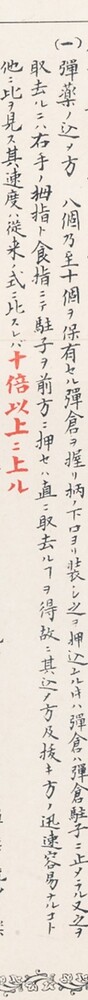 (一)彈藥ノ込メ方 八個乃至十個ヲ保有セル彈倉ヲ握リ柄ノ下口ヨリ裝シ之ヲ押込ムル時ハ彈倉ハ彈倉駐子ニ止メラル又之ヲ
取去ルニハ右手ノ拇指ト食指ニテ駐子ヲ前方ニ押セバ直ニ取去ルヿヲ得故ニ其込メ方及拔キ方ノ迅速容易ナルコト
他ニ比ヲ見ス其速度ハ從来ノ式ニ比スレバ十倍以上ニ上ル